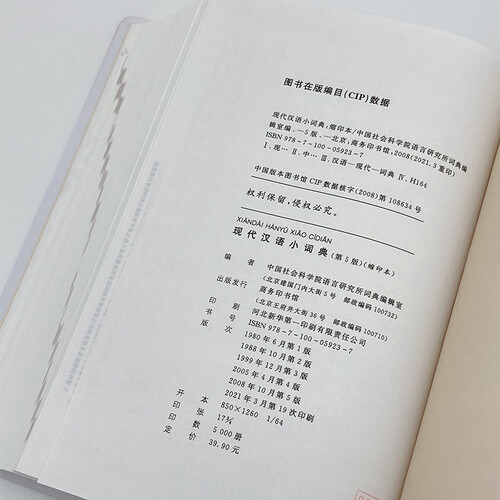 图书在版编目(CIP)数据
现代汉语小词典:缩印本/中国社会科学院语言研究所词典编
辑室编.—5版.—北京:商务印书馆,2008(2021.3重印)
ISBN 978-7-100-05923-7
Ⅰ.现… Ⅱ.中… Ⅲ.汉语—现代—词典 Ⅳ.H164
中国版本图书馆CIP数据核字(2008)第108634号
权利保留,侵权必究。
XIÀNDÀI HÀNYǓ XIǍO CÍDIǍN
现代汉语小词典(第5版)(缩印本)
编者 中国社会科学院语言研究所词典编辑室
(北京建国门内大街5号 邮政编码100732)
出版发行 商务印书馆
(北京王府井大街36号 邮政编码100710)
印刷 河北新华第一印刷有限责任公司
书号 ISBN 978-7-100-05923-7
版次 1980年6月第1版
1988年10月第2版
1999年12月第3版
2005年4月第4版
2008年10月第5版
2021年3月第19次印刷
开本 850×1260 1/64
印张 17¾
印数 5000册
定价 39.90元